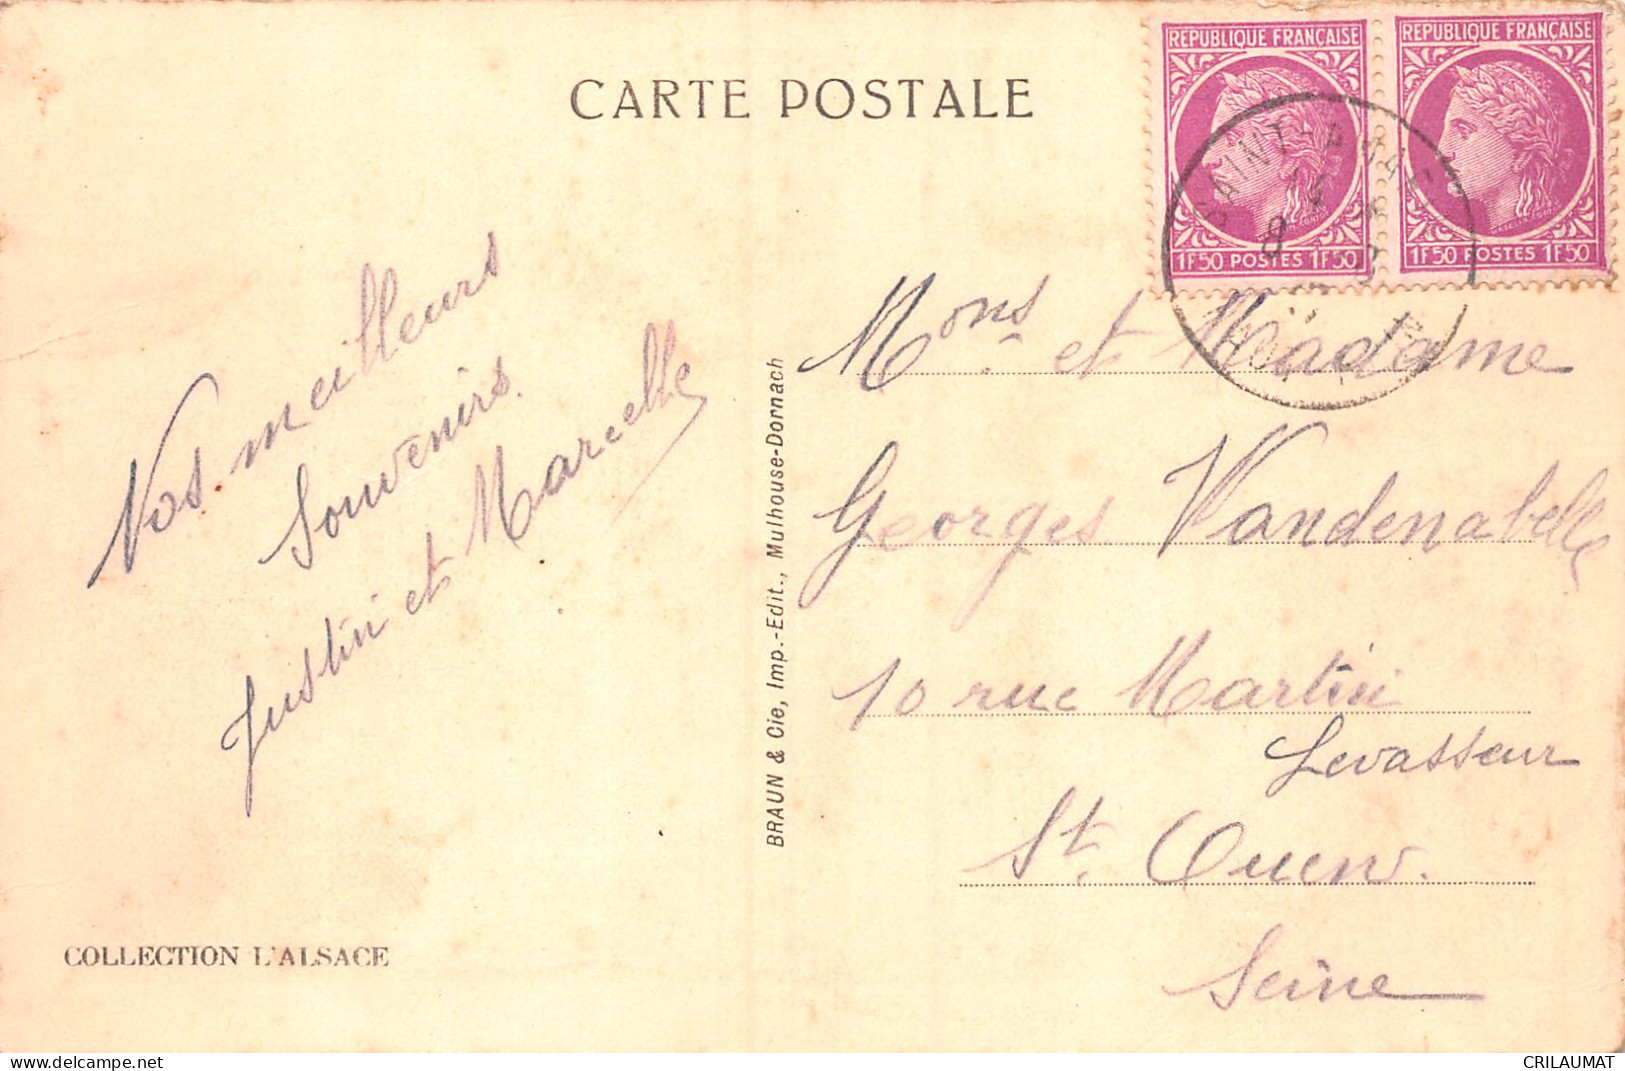 CARTE POSTALE
REPUBLIQUE FRANÇAISE
1F50 POSTES 1F50
REPUBLIQUE FRANÇAISE
1F50 POSTES 1F50
SAINT-AMARIN
Vos meilleurs
Souvenirs.
Justin et Marcelle
Mons. et Madame
Georges Vandenabelle
10 rue Martin
Levasseur
St. Ouen.
Seine
BRAUN & Cie, Imp.-Edit., Mulhouse-Dornach
COLLECTION L'ALSACE
https://www.delcampe.net
CRILAUMAT